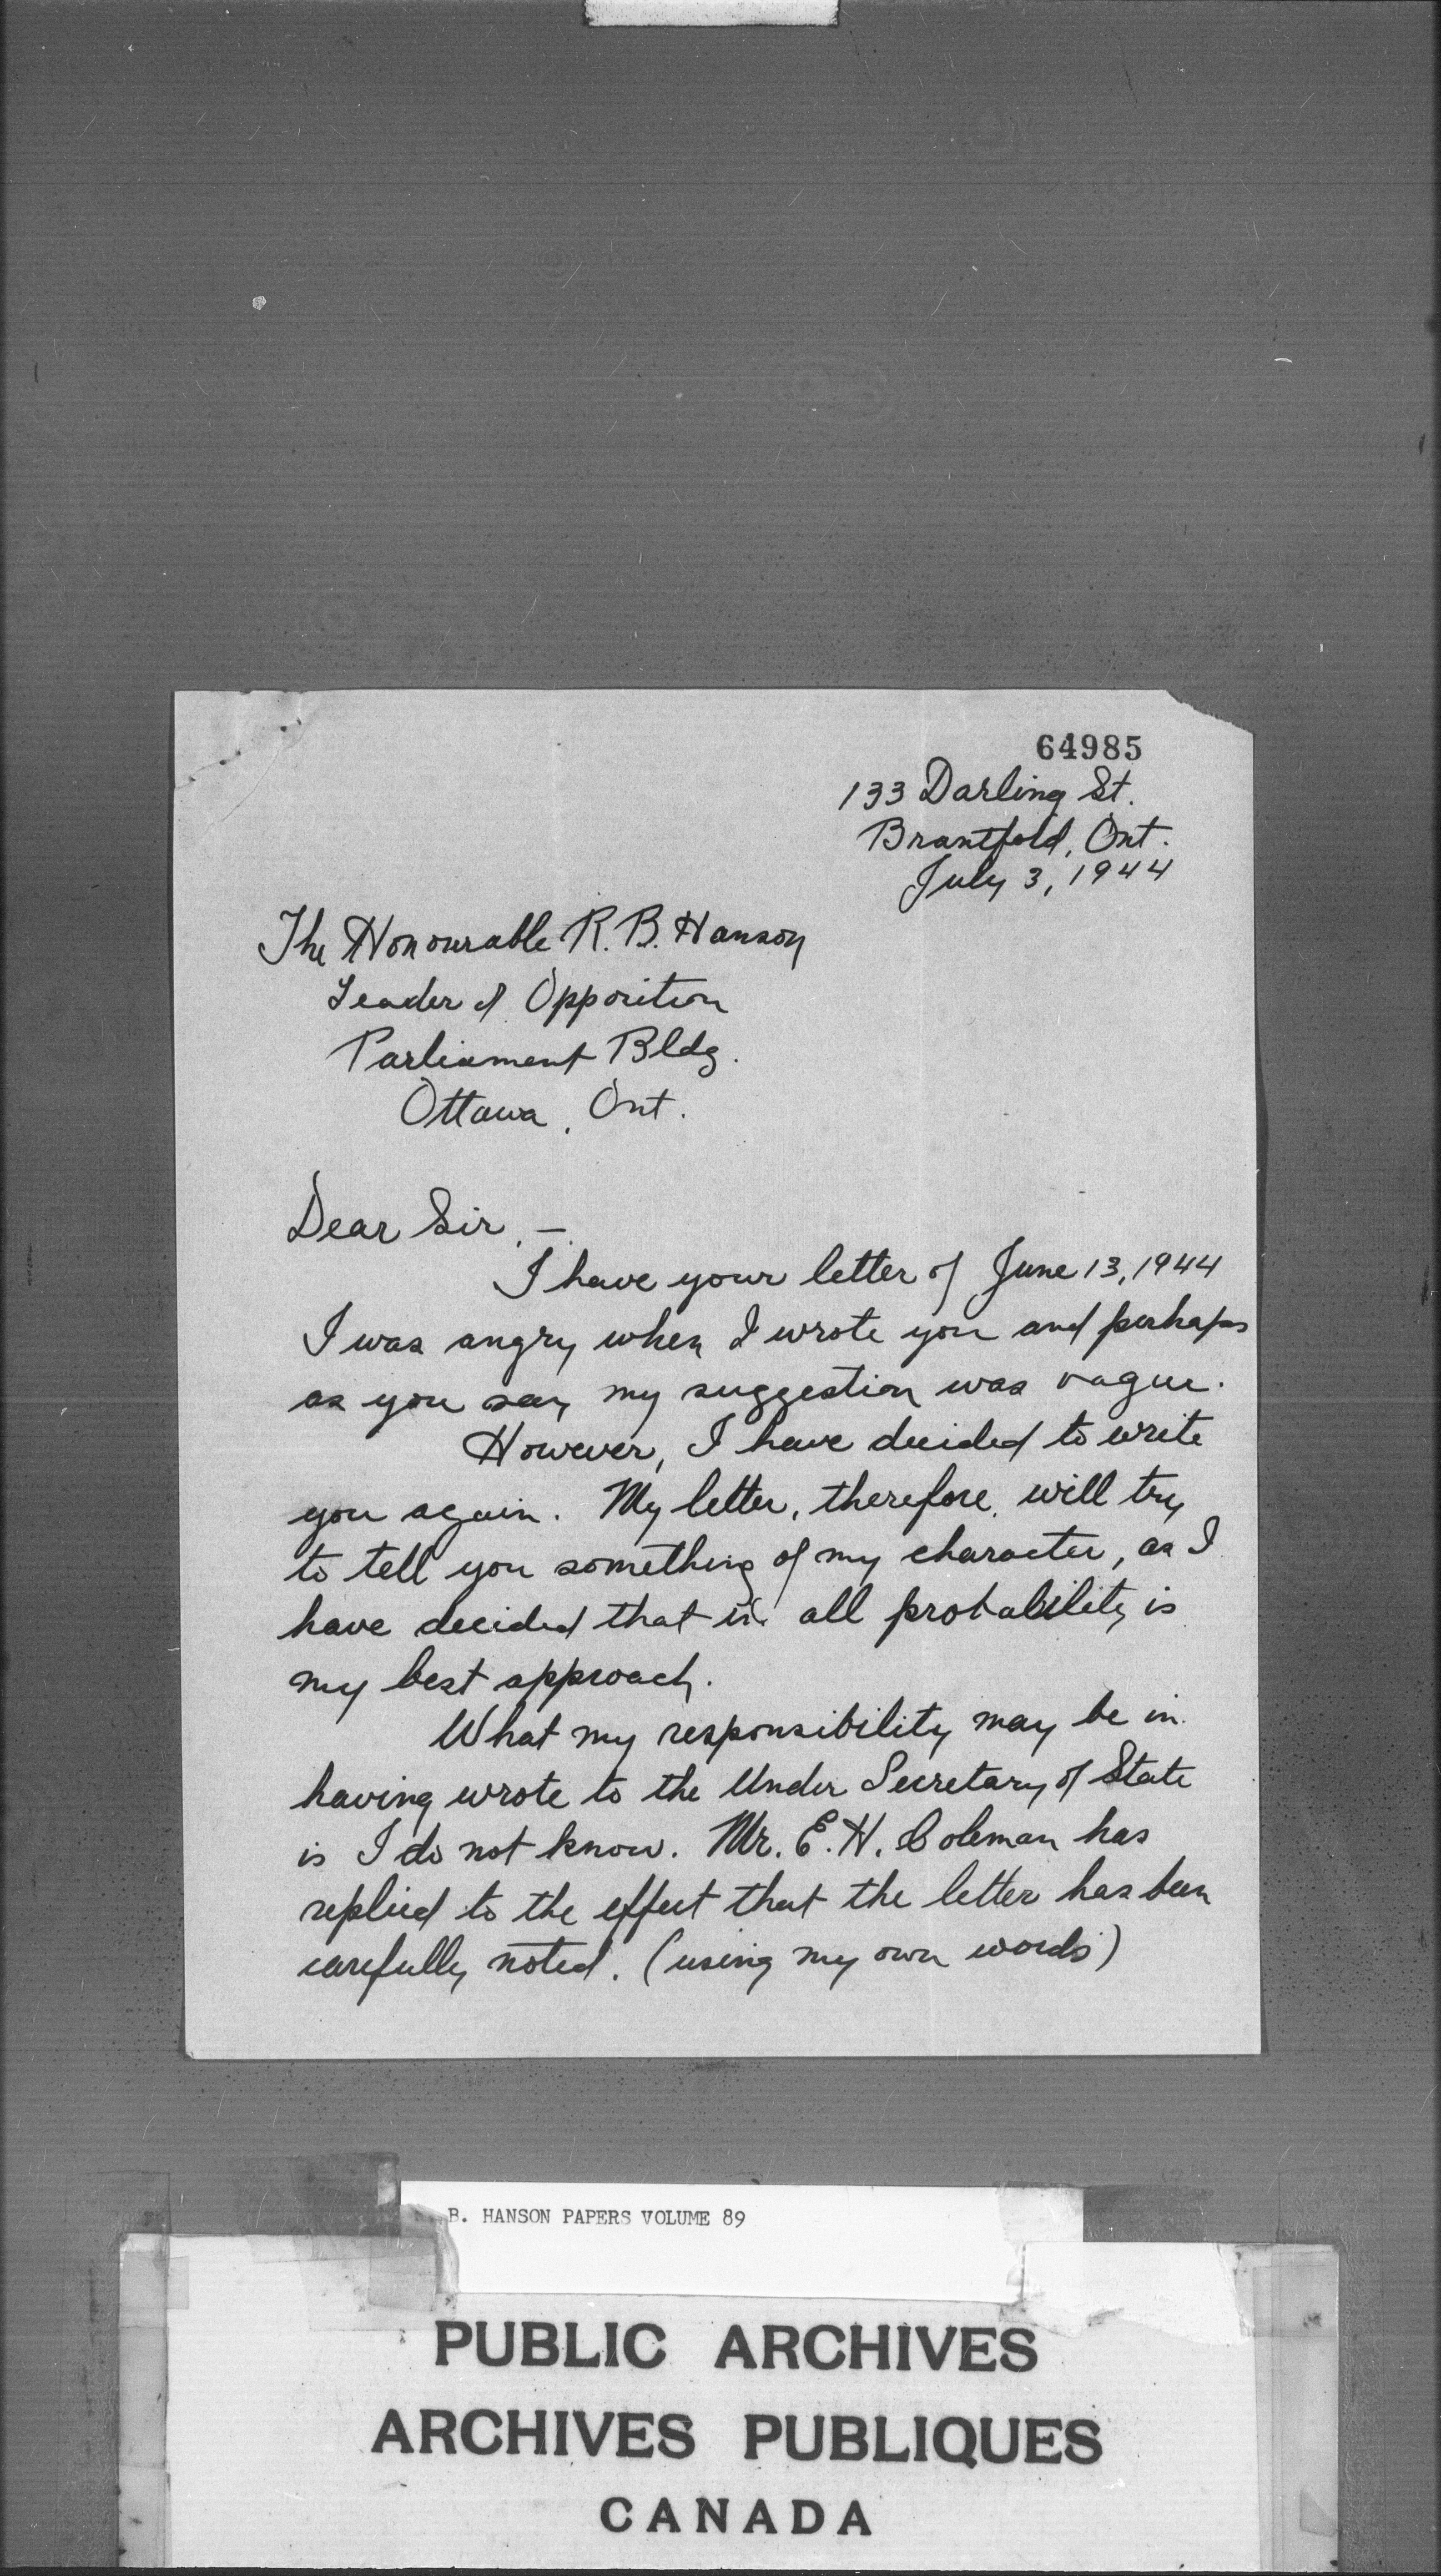 64985
133 Darling St.
Brantfold, Ont.
July 3, 1944
The Honourable R. B. Hanson
Leader of Opposition
Parliament Bldg.
Ottawa, Ont.
Dear Sir, -
I have your letter of June 13, 1944
I was angry when I wrote you and perhaps
as you say my suggestion was vague.
However, I have decided to write
you again. My letter, therefore, will try
to tell you something of my character, as I
have decided that in all probability is
my best approach.
What my responsibility may be in
having wrote to the Under Secretary of State
is I do not know. Mr. E. H. Coleman has
replied to the effect that the letter has been
carefully noted. (using my own words)
B. HANSON PAPERS VOLUME 89
PUBLIC ARCHIVES
ARCHIVES PUBLIQUES
CANADA